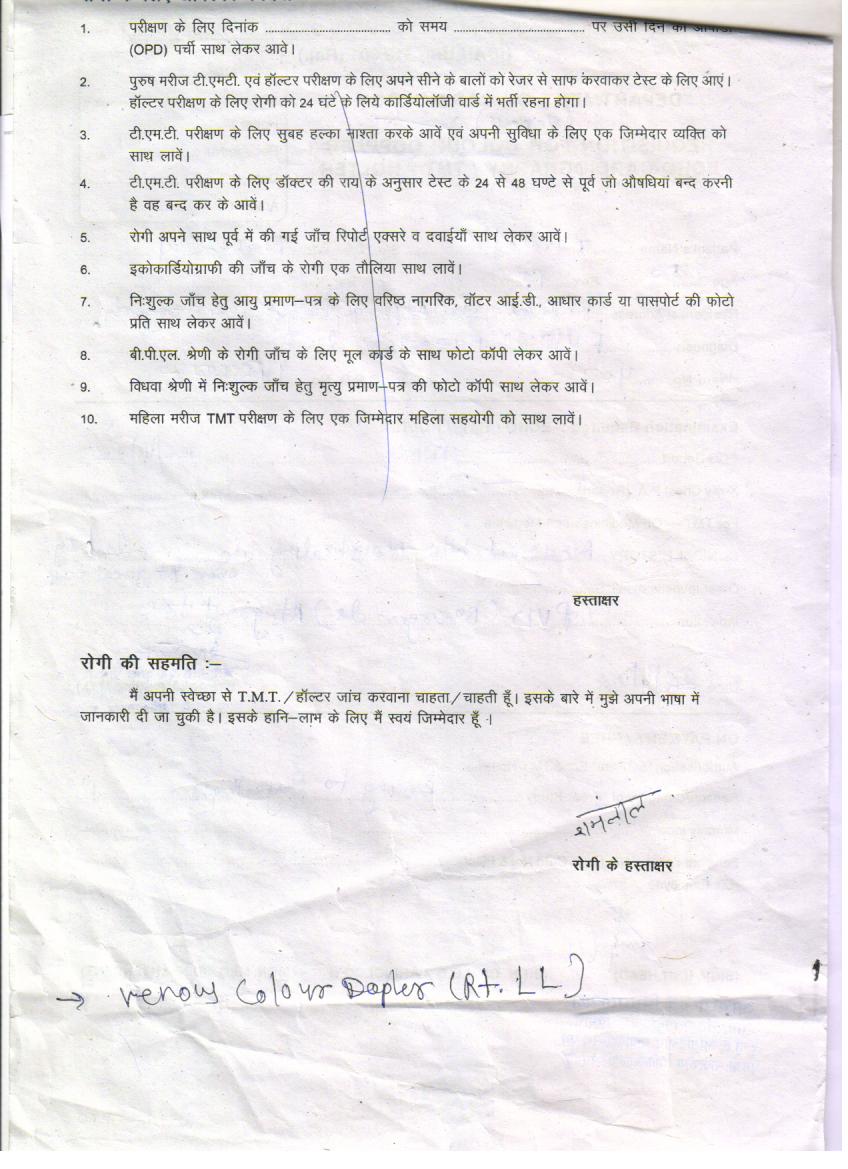 1. परीक्षण के लिए दिनांक ........................................ को समय .......................................... पर उसी दिन की
(OPD) पर्ची साथ लेकर आवे।
2. पुरुष मरीज टी.एमटी. एवं हॉल्टर परीक्षण के लिए अपने सीने के बालों को रेजर से साफ करवाकर टेस्ट के लिए आएं।
हॉल्टर परीक्षण के लिए रोगी को 24 घंटे के लिये कार्डियोलॉजी वार्ड में भर्ती रहना होगा।
3. टी.एम.टी. परीक्षण के लिए सुबह हल्का नाश्ता करके आवें एवं अपनी सुविधा के लिए एक जिम्मेदार व्यक्ति को
साथ लावें।
4. टी.एम.टी. परीक्षण के लिए डॉक्टर की राय के अनुसार टेस्ट के 24 से 48 घण्टे से पूर्व जो औषधियां बन्द करनी
है वह बन्द कर के आवें।
5. रोगी अपने साथ पूर्व में की गई जाँच रिपोर्ट एक्सरे व दवाईयाँ साथ लेकर आवें।
6. इकोकार्डियोग्राफी की जाँच के रोगी एक तौलिया साथ लावें।
7. निःशुल्क जाँच हेतु आयु प्रमाण–पत्र के लिए वरिष्ठ नागरिक, वॉटर आई.डी., आधार कार्ड या पासपोर्ट की फोटो
प्रति साथ लेकर आवें।
8. बी.पी.एल. श्रेणी के रोगी जाँच के लिए मूल कार्ड के साथ फोटो कॉपी लेकर आवें।
9. विधवा श्रेणी में निःशुल्क जाँच हेतु मृत्यु प्रमाण–पत्र की फोटो कॉपी साथ लेकर आवें।
10. महिला मरीज TMT परीक्षण के लिए एक जिम्मेदार महिला सहयोगी को साथ लावें।
हस्ताक्षर
रोगी की सहमति :–
मैं अपनी स्वेच्छा से T.M.T./हॉल्टर जांच करवाना चाहता/चाहती हूँ। इसके बारे में मुझे अपनी भाषा में
जानकारी दी जा चुकी है। इसके हानि–लाभ के लिए मैं स्वयं जिम्मेदार हूँ ।
रोगी के हस्ताक्षर
→ venous Colour Dopler (Rt. LL)